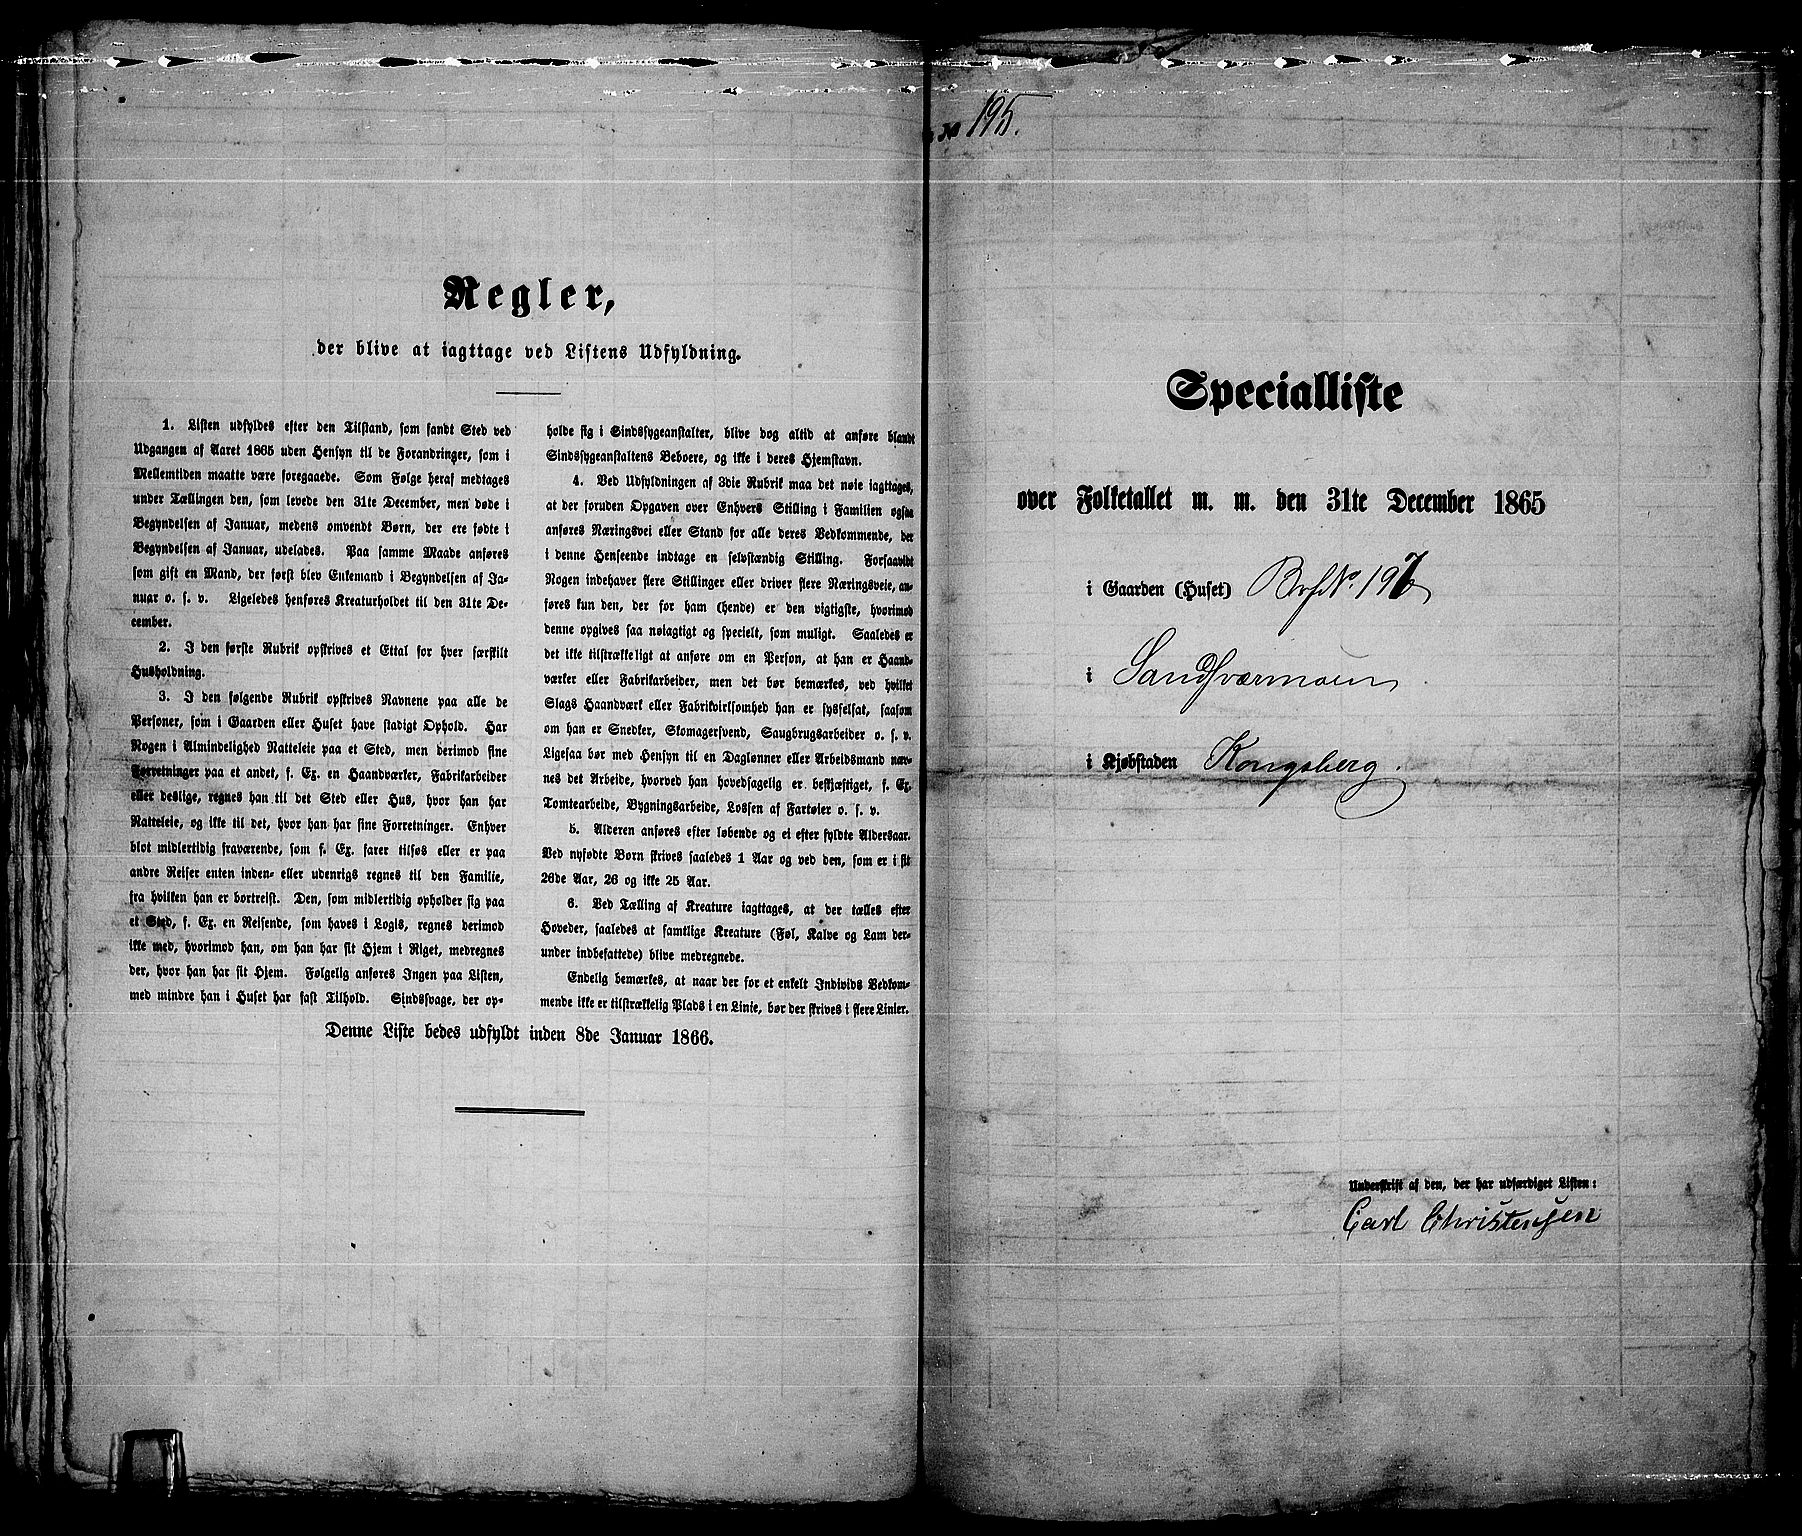 Regler,
der blive at iagttage ved Listens Udfyldning.
1. Listen udfyldes efter den Tilstand, som fandt Sted ved
Udgangen af Aaret 1865 uden Hensyn til de Forandringer, som i
Mellemtiden maatte være foregaaede. Som Følge heraf medtages
under Tællingen den, som levede den 31te December, men døde i
Begyndelsen af Januar, medens omvendt Børn, der ere fødte i
Begyndelsen af Januar, udelades. Paa samme Maade anføres
som gift en Mand, der først blev Enkemand i Begyndelsen af Ja-
nuar o. s. v. Ligeledes henføres Kreaturholdet til den 31te De-
cember.
2. I den første Rubrik opskrives et Ettal for hver særskilt
Husholdning.
3. I den følgende Rubrik opskrives Navnene paa alle de
Personer, som i Gaarden eller Huset have stadigt Ophold. Har
Nogen i Almindelighed Natteleie paa et Sted, men derimod sine
Forretninger paa et andet, f. Ex. en Haandværker, Fabrikarbeider
eller deslige, regnes han til det Sted eller Hus, hvor han har
Natteleie, og ikke til det, hvor han har sine Forretninger. Enhver
blot midlertidig fraværende, som f. Ex. farer tilsøs eller er paa
andre Reiser enten inden- eller udenrigs regnes til den Familie,
fra hvilken han er bortreist. Den, som midlertidig opholder sig paa
et Sted, f. Ex. en Reisende, som haves i Logis, regnes derimod
ikke med, hvorimod han, om han har sit Hjem i Riget, medregnes
der, hvor han har sit Hjem. Følgelig anføres Ingen paa Listen,
med mindre han i Huset har fast Tilhold. Sindssvage, der op-
holde sig i Sindssygeanstalter, blive dog altid at anføre blandt
Sindssygeanstaltens Beboere, og ikke i deres Hjemstavn.
4. Ved Udfyldningen af 3die Rubrik maa det nøie iagttages,
at der foruden Opgaven over Enhvers Stilling i Familien ogsaa
anføres Næringsvei eller Stand for alle deres Vedkommende, der
i denne Henseende indtage en selvstændig Stilling. Forsaavidt
Nogen indehaver flere Stillinger eller driver flere Næringsveie, an-
føres kun den, der for ham (hende) er den vigtigste, hvorimod
denne opgives saa nøiagtigt og specielt, som muligt. Saaledes er
det ikke tilstrækkeligt at anføre om en Person, at han er Haand-
værker eller Fabrikarbeider, men det bør bemærkes, ved hvilket
Slags Haandværk eller Fabrikvirksomhed han er sysselsat, saasom
om han er Snedker, Skomagersvend, Saugbrugsarbeider o. s. v.
Ligesaa bør med Hensyn til en Daglønner eller Arbeidsmand næv-
nes det Arbeide, hvorved han hovedsagelig er beskjæftiget, f. Ex.
Tomtearbeide, Bygningsarbeide, Lossen af Fartøier o. s. v.
5. Alderen anføres efter løbende og ei efter fyldte Aldersaar.
Ved nyfødte Børn skrives saaledes 1 Aar og ved den, som er i sit
26de Aar, 26 og ikke 25 Aar.
6. Ved Tælling af Kreature iagttages, at der tælles efter
Hoveder, saaledes at samtlige Kreature (Føl, Kalve og Lam der-
under indbefattede) blive medregnede.
Endelig bemærkes, at naar der for et enkelt Individs Vedkom-
mende ikke er tilstrækkelig Plads i en Linie, bør der skrives i flere Linier.
Denne Liste bedes udfyldt inden 8de Januar 1866.
№ 195.
Specialliste
over Folketallet m. m. den 31te December 1865
i Gaarden (Huset) 197
i Sandsværmoen
i Kjøbstaden Kongsberg.
Underskrift af den, der har udfærdiget Listen:
Carl Christensen